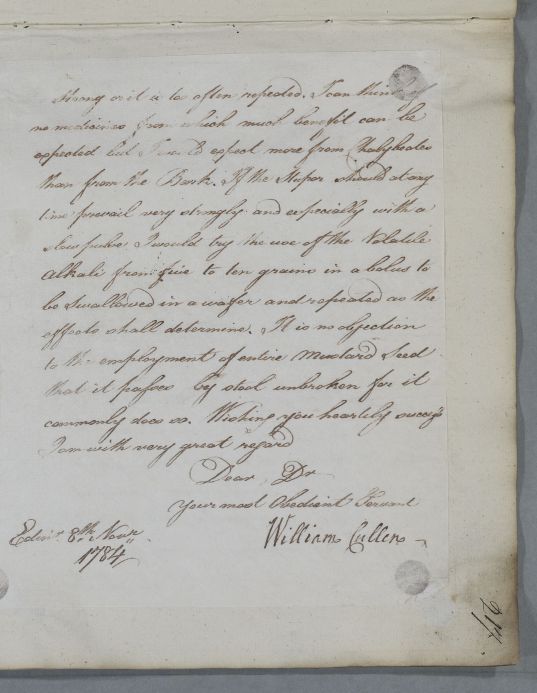 strong or it is too often repeated. I can think of
no medicines from which much benefit can be
expected but I would expect more from Chalybeates
than from the Bark. If the Stupor should at any
time prevail very strongly and especially with a
slow pulse I would try the use of the Volatile
Alkali from five to ten grains in a bolus to
be swallowed in a wafer and repeated as the
effects shall determine. It is no objection
to the employment of entire Mustard Seed
that it passes by stool unbroken for it
commonly does so. Wishing you heartily success
I am with very great regard
Dear Dr
your most Obedient Servant
William Cullen
Edinr. 8th. Novr
1784